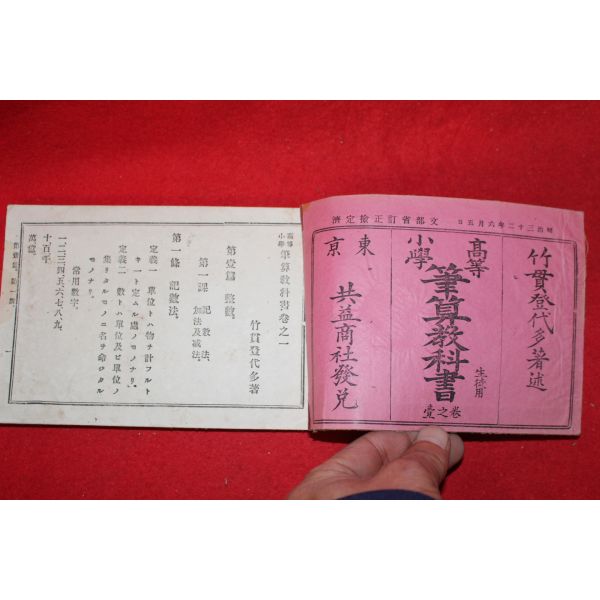 明治三十二年六月五日 文部省訂正検定済
竹貫登代多著述
高等
小學
筆算教科書
生徒用
卷之壹
東京
共益商社發兌
高等
小學
筆算教科書卷之一
竹貫登代多著
第壹篇 整數、
第一課 記數法、
加法及減法、
第一條 記數法、
定義一 單位トハ物ヲ計フルト
キ一ト定ムル處ノモノナリ、
定義二 數トハ單位及ビ單位ノ
集リタルモノニ名ヲ命ジタル
モノナリ、
常用數字、
一、二、三、四、五、六、七、八、九、
十、百、千、
萬、億、